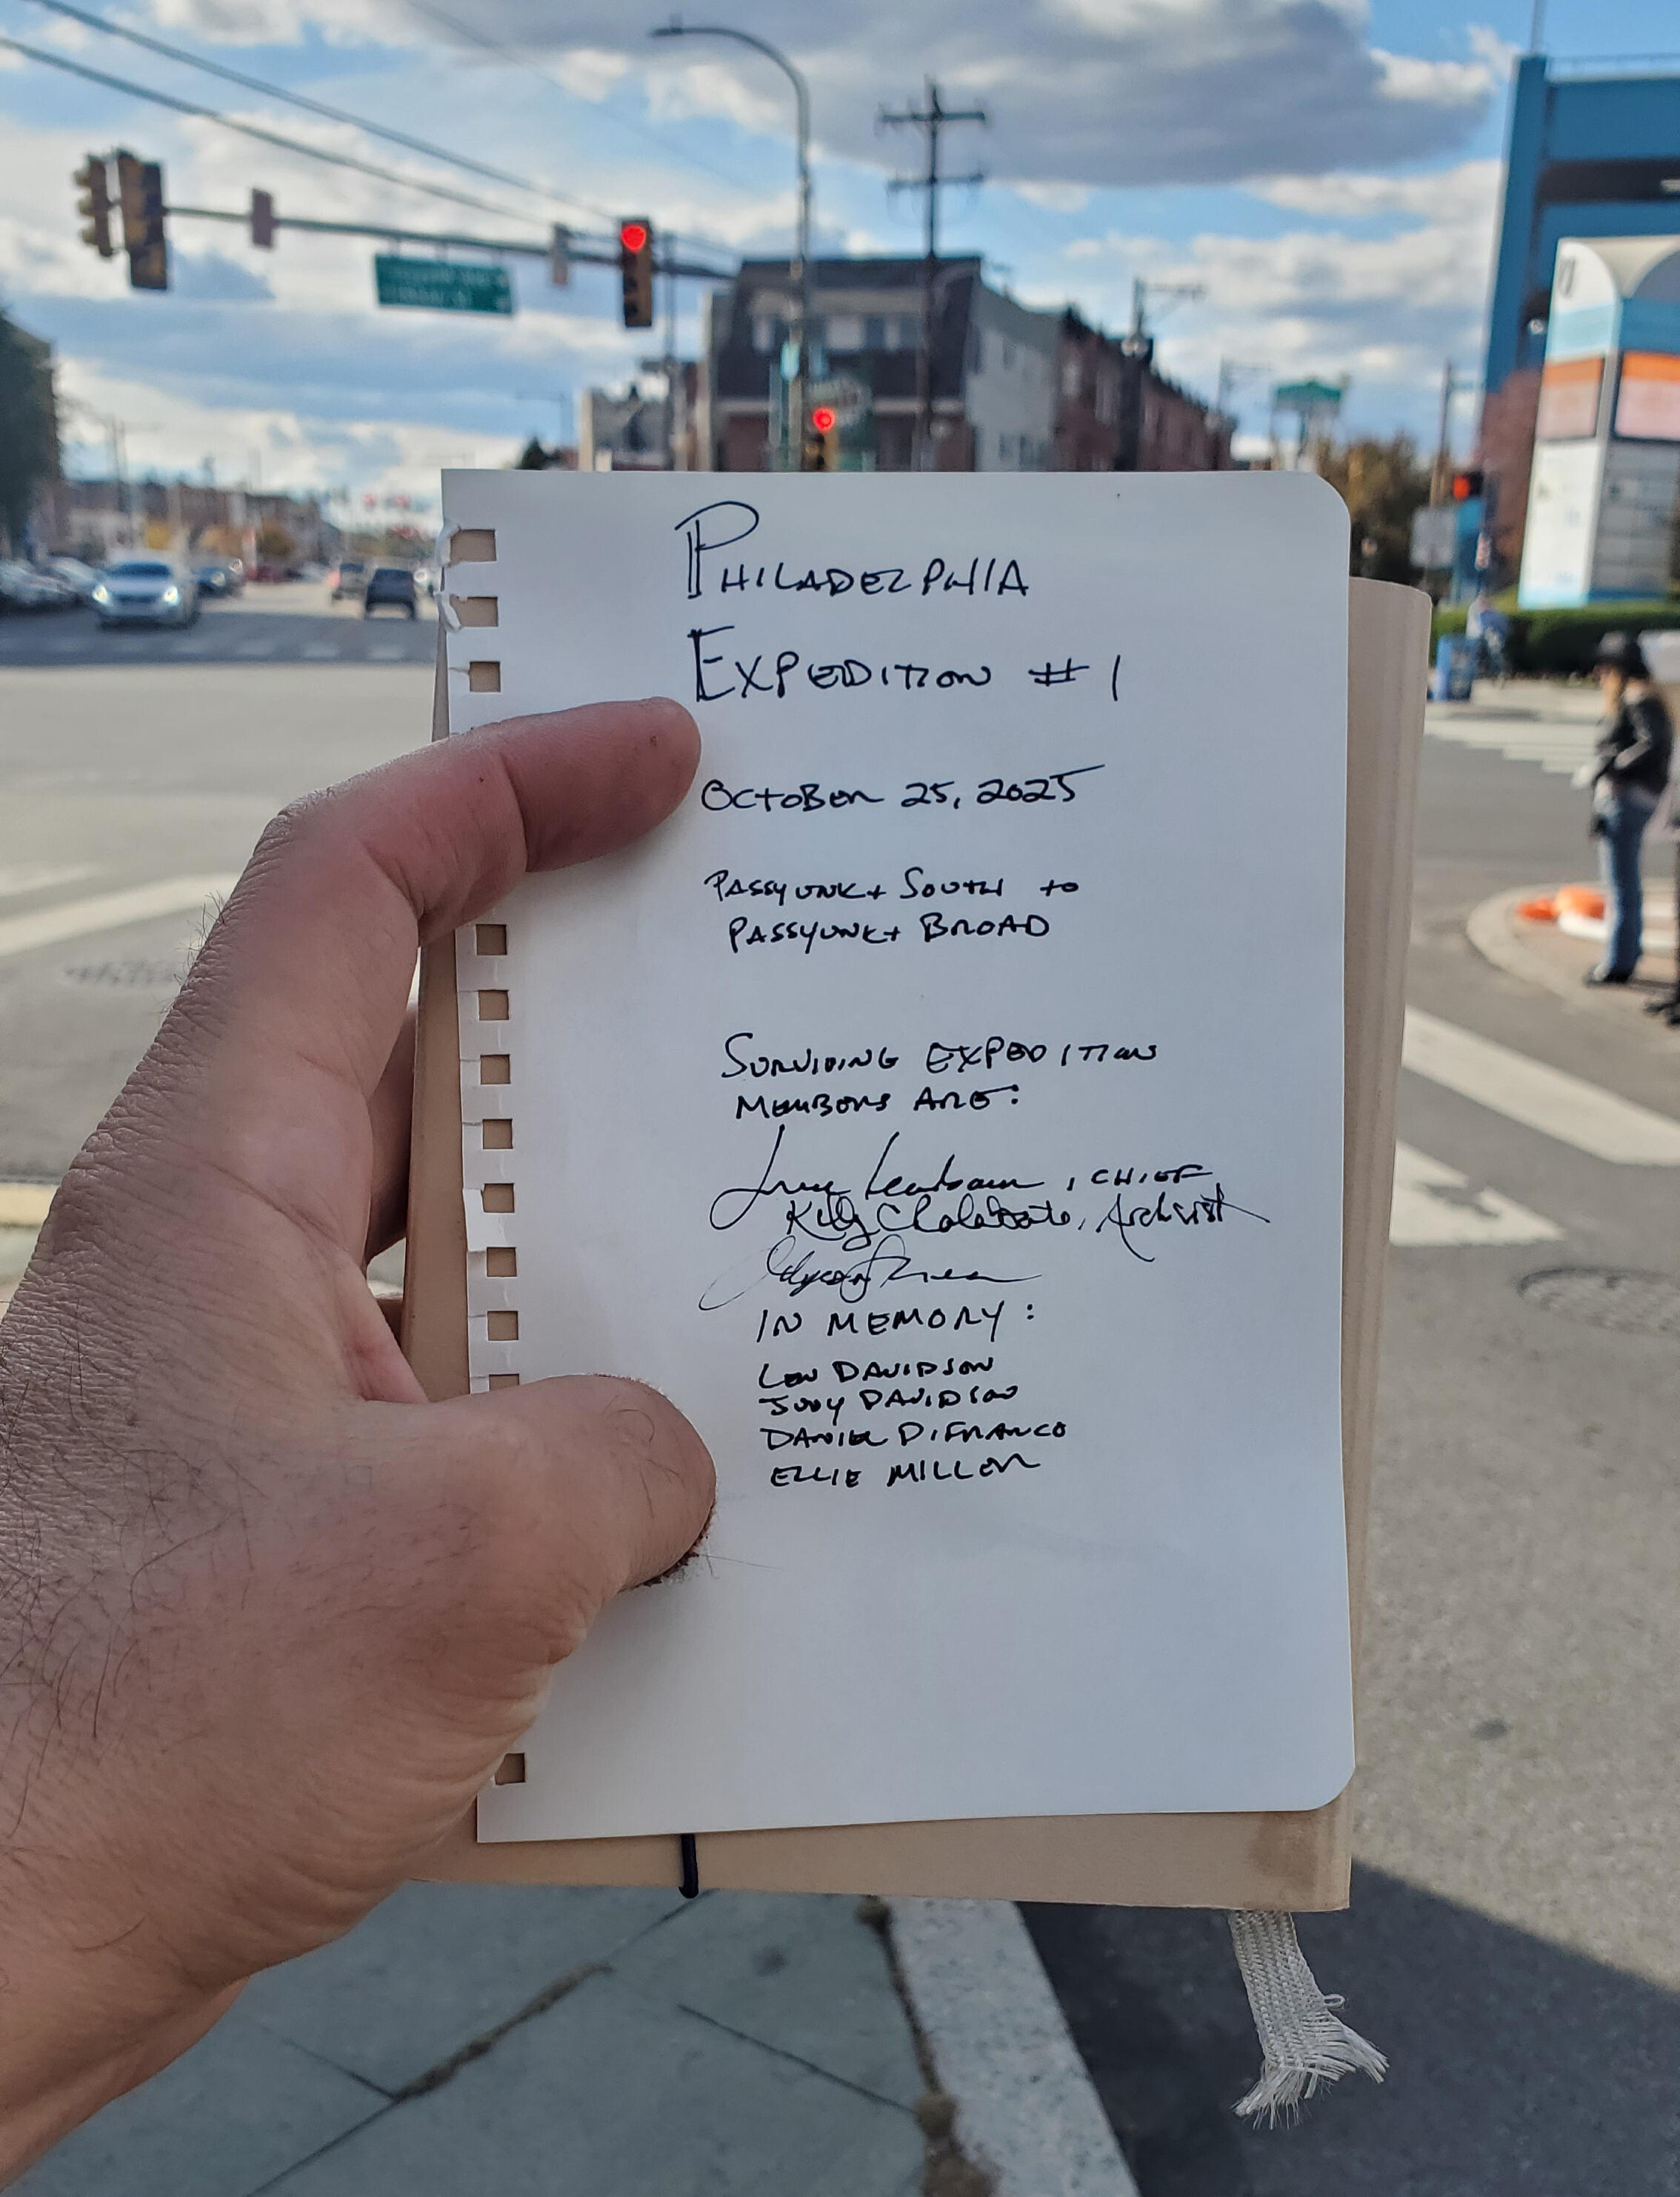 PHILADELPHIA
EXPEDITION #1
OCTOBER 25, 2025
PASSYUNK + SOUTH to
PASSYUNK + BROAD
SURVIVING EXPEDITION
MEMBERS ARE:
, CHIEF
Archivist
IN MEMORY:
LEN DAVIDSON
JUDY DAVIDSON
DANIEL DIFRANCO
ELLIE MILLER